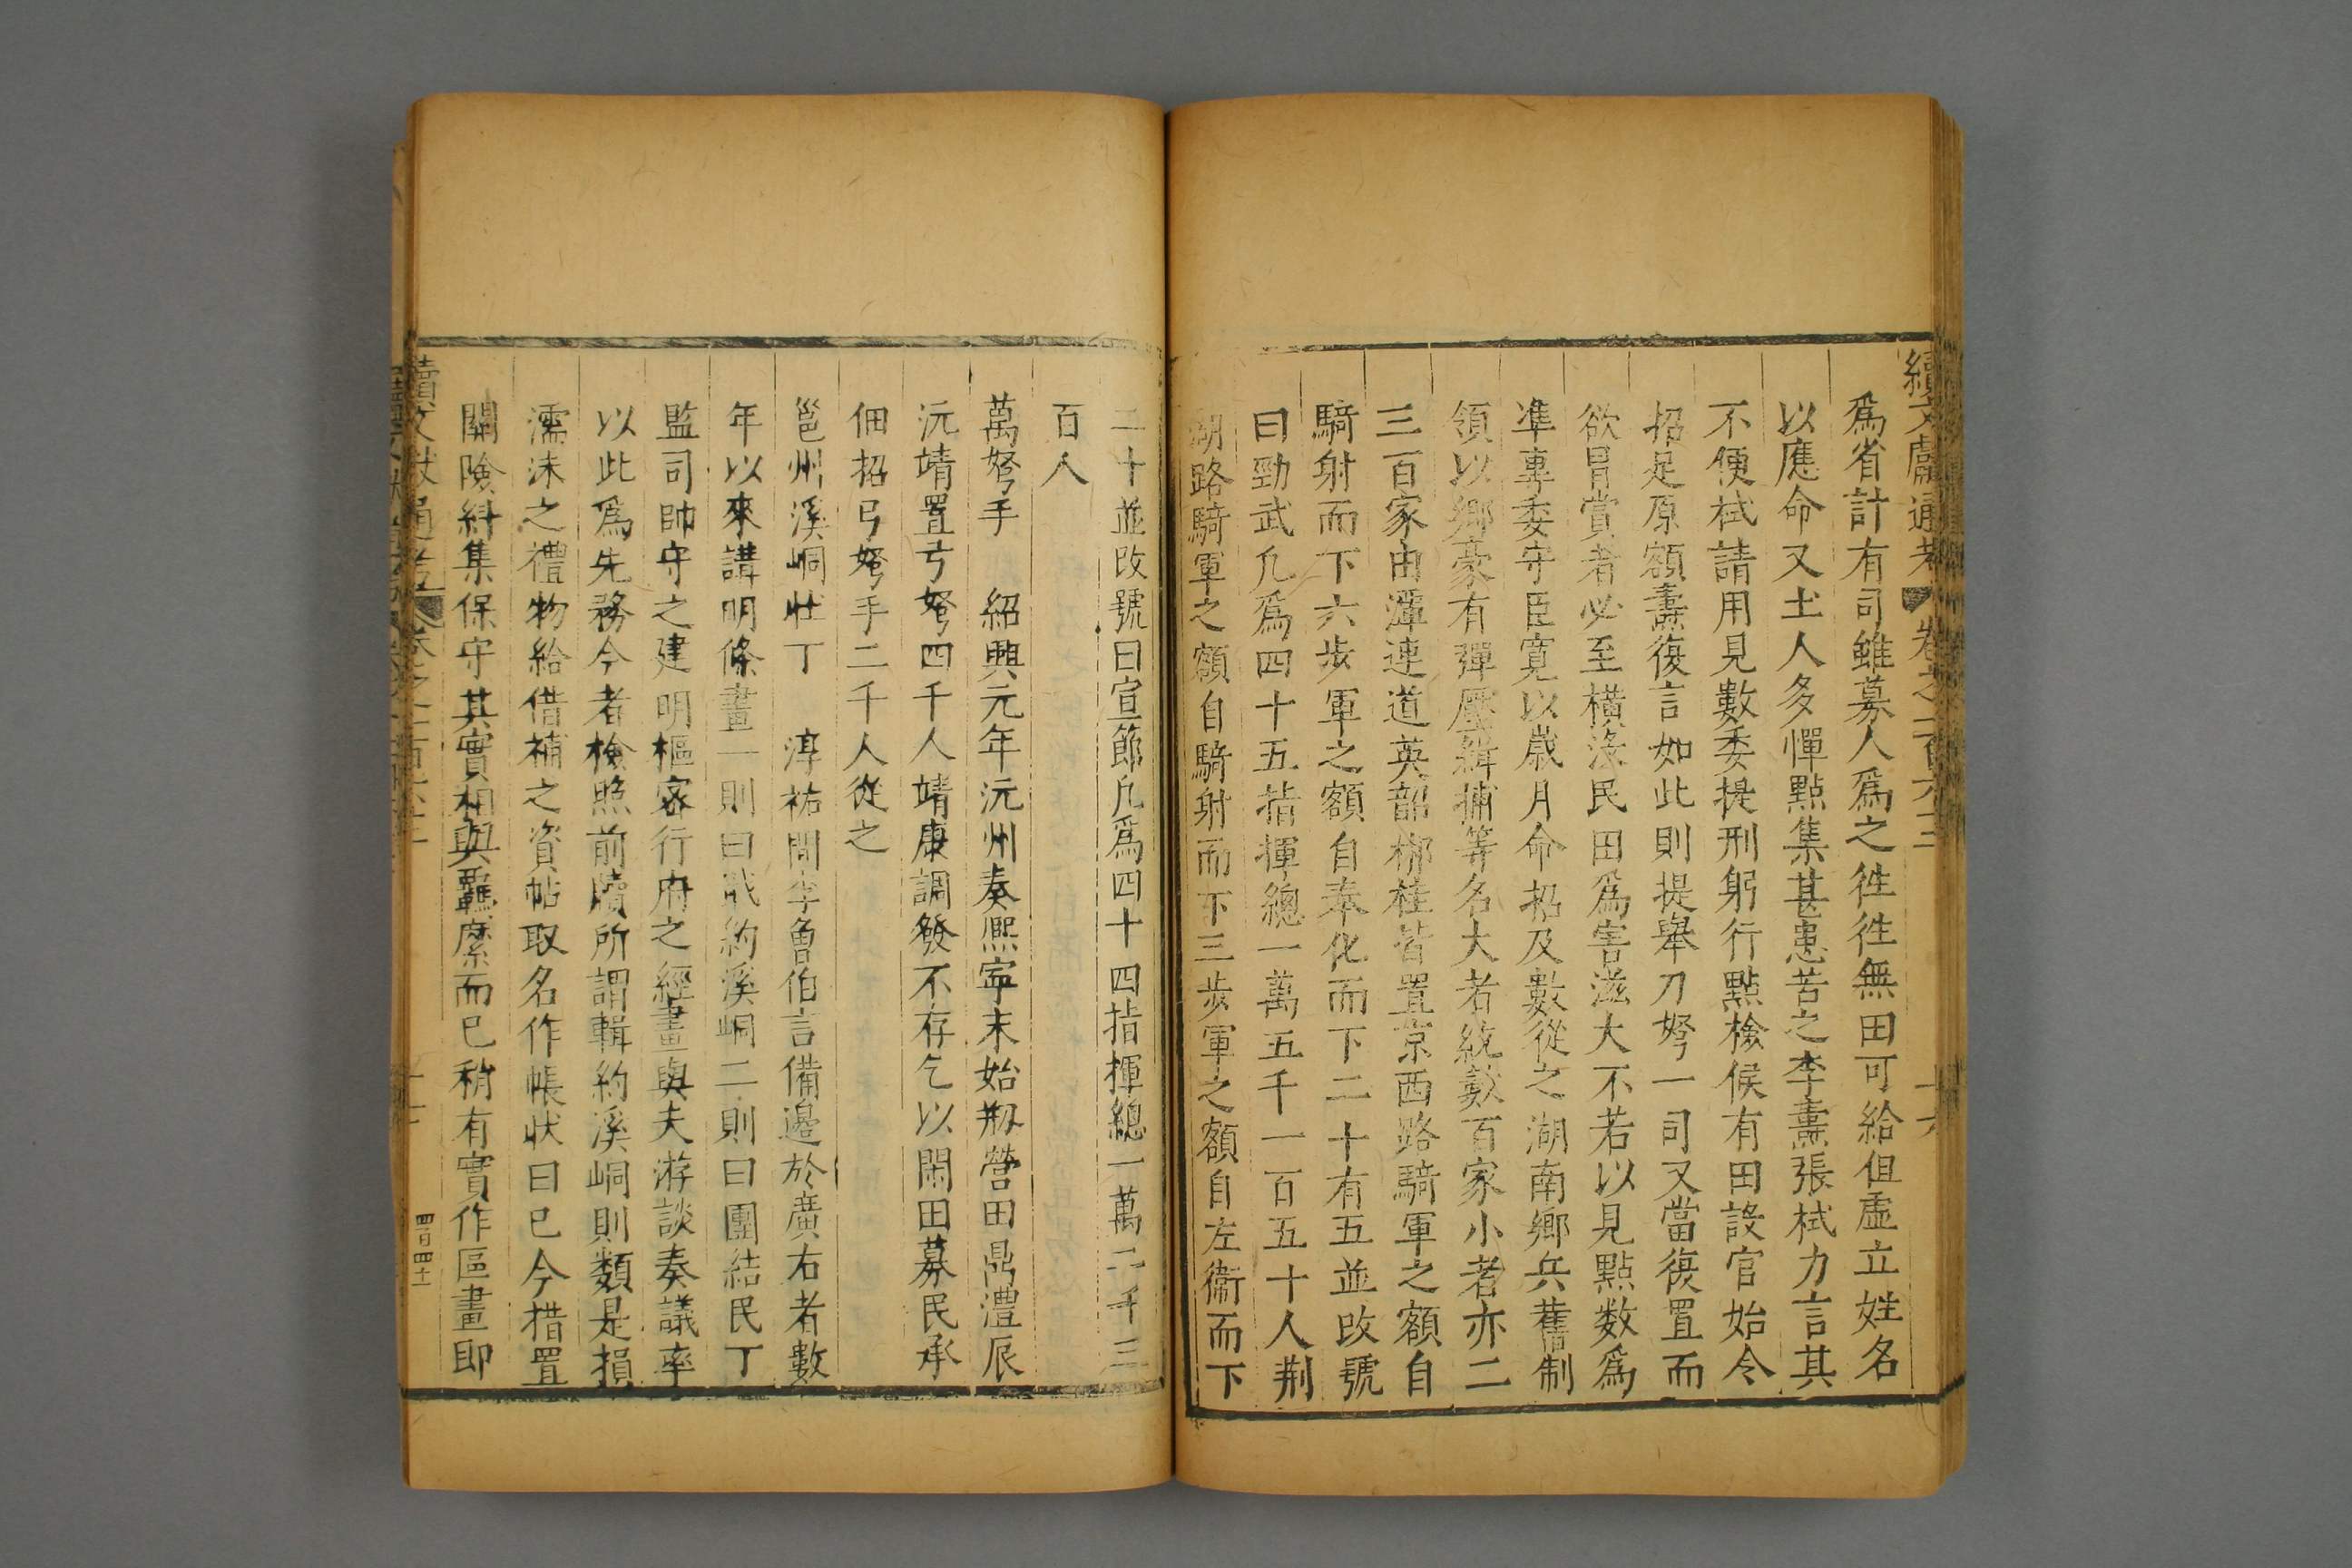 續文獻通考 卷之一百六十三 十六
爲省計有司雖募人爲之徃徃無田可給但虛立姓名
以應命又土人多憚點集甚患苦之李燾張栻力言其
不便栻請用見數委提刑躬行點檢候有田設官始令
招足原額燾復言如此則提舉刀弩一司又當復置而
欲冒賞者必至橫㳂民田爲害滋大不若以見點数爲
準專委守臣寬以歲月命招及數從之湖南鄉兵舊制
領以鄉豪有彈壓緝捕等名大者統數百家小者亦二
三百家由潭連道英韶郴桂皆置京西路騎軍之額自
騎射而下六步軍之額自奉化而下二十有五並改號
曰勁武凡爲四十五指揮總一萬五千一百五十人荆
湖路騎軍之額自騎射而下三步軍之額自左衞而下
二十並改號曰宣節凡爲四十四指揮總一萬二千三
百人
萬弩手 紹興元年沅州奏熙寧末始剏營田鼎澧辰
沅靖置弓弩四千人靖康調發不存乞以閑田募民承
佃招弓弩手二千人從之
邕州溪峒壯丁 淳祐間李魯伯言備邊於廣右者數
年以來講明條畫一則曰戢約溪峒二則曰團結民丁
監司帥守之建明樞密行府之經畫與夫游談奏議率
以此爲先務今者檢照前牘所謂輯約溪峒則類是損
濡沫之禮物給借補之資帖取名作帳状曰已今措置
關險糾集保守其實相與羈縻而已稍有實作區畫即
續文獻通考 卷之一百六十三
四百四十